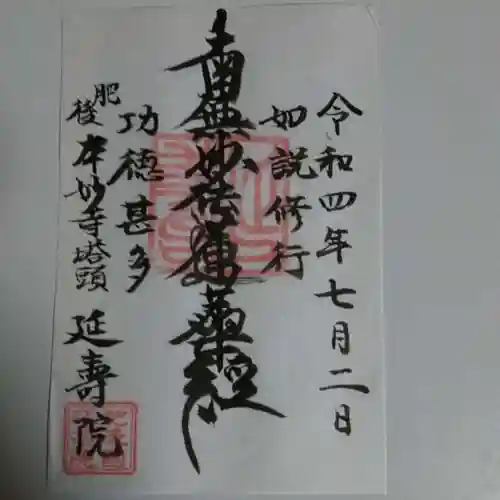 令和四年七月二日
如説修行
南無妙法蓮華経
功徳甚多
肥後
本妙寺塔頭
延壽院